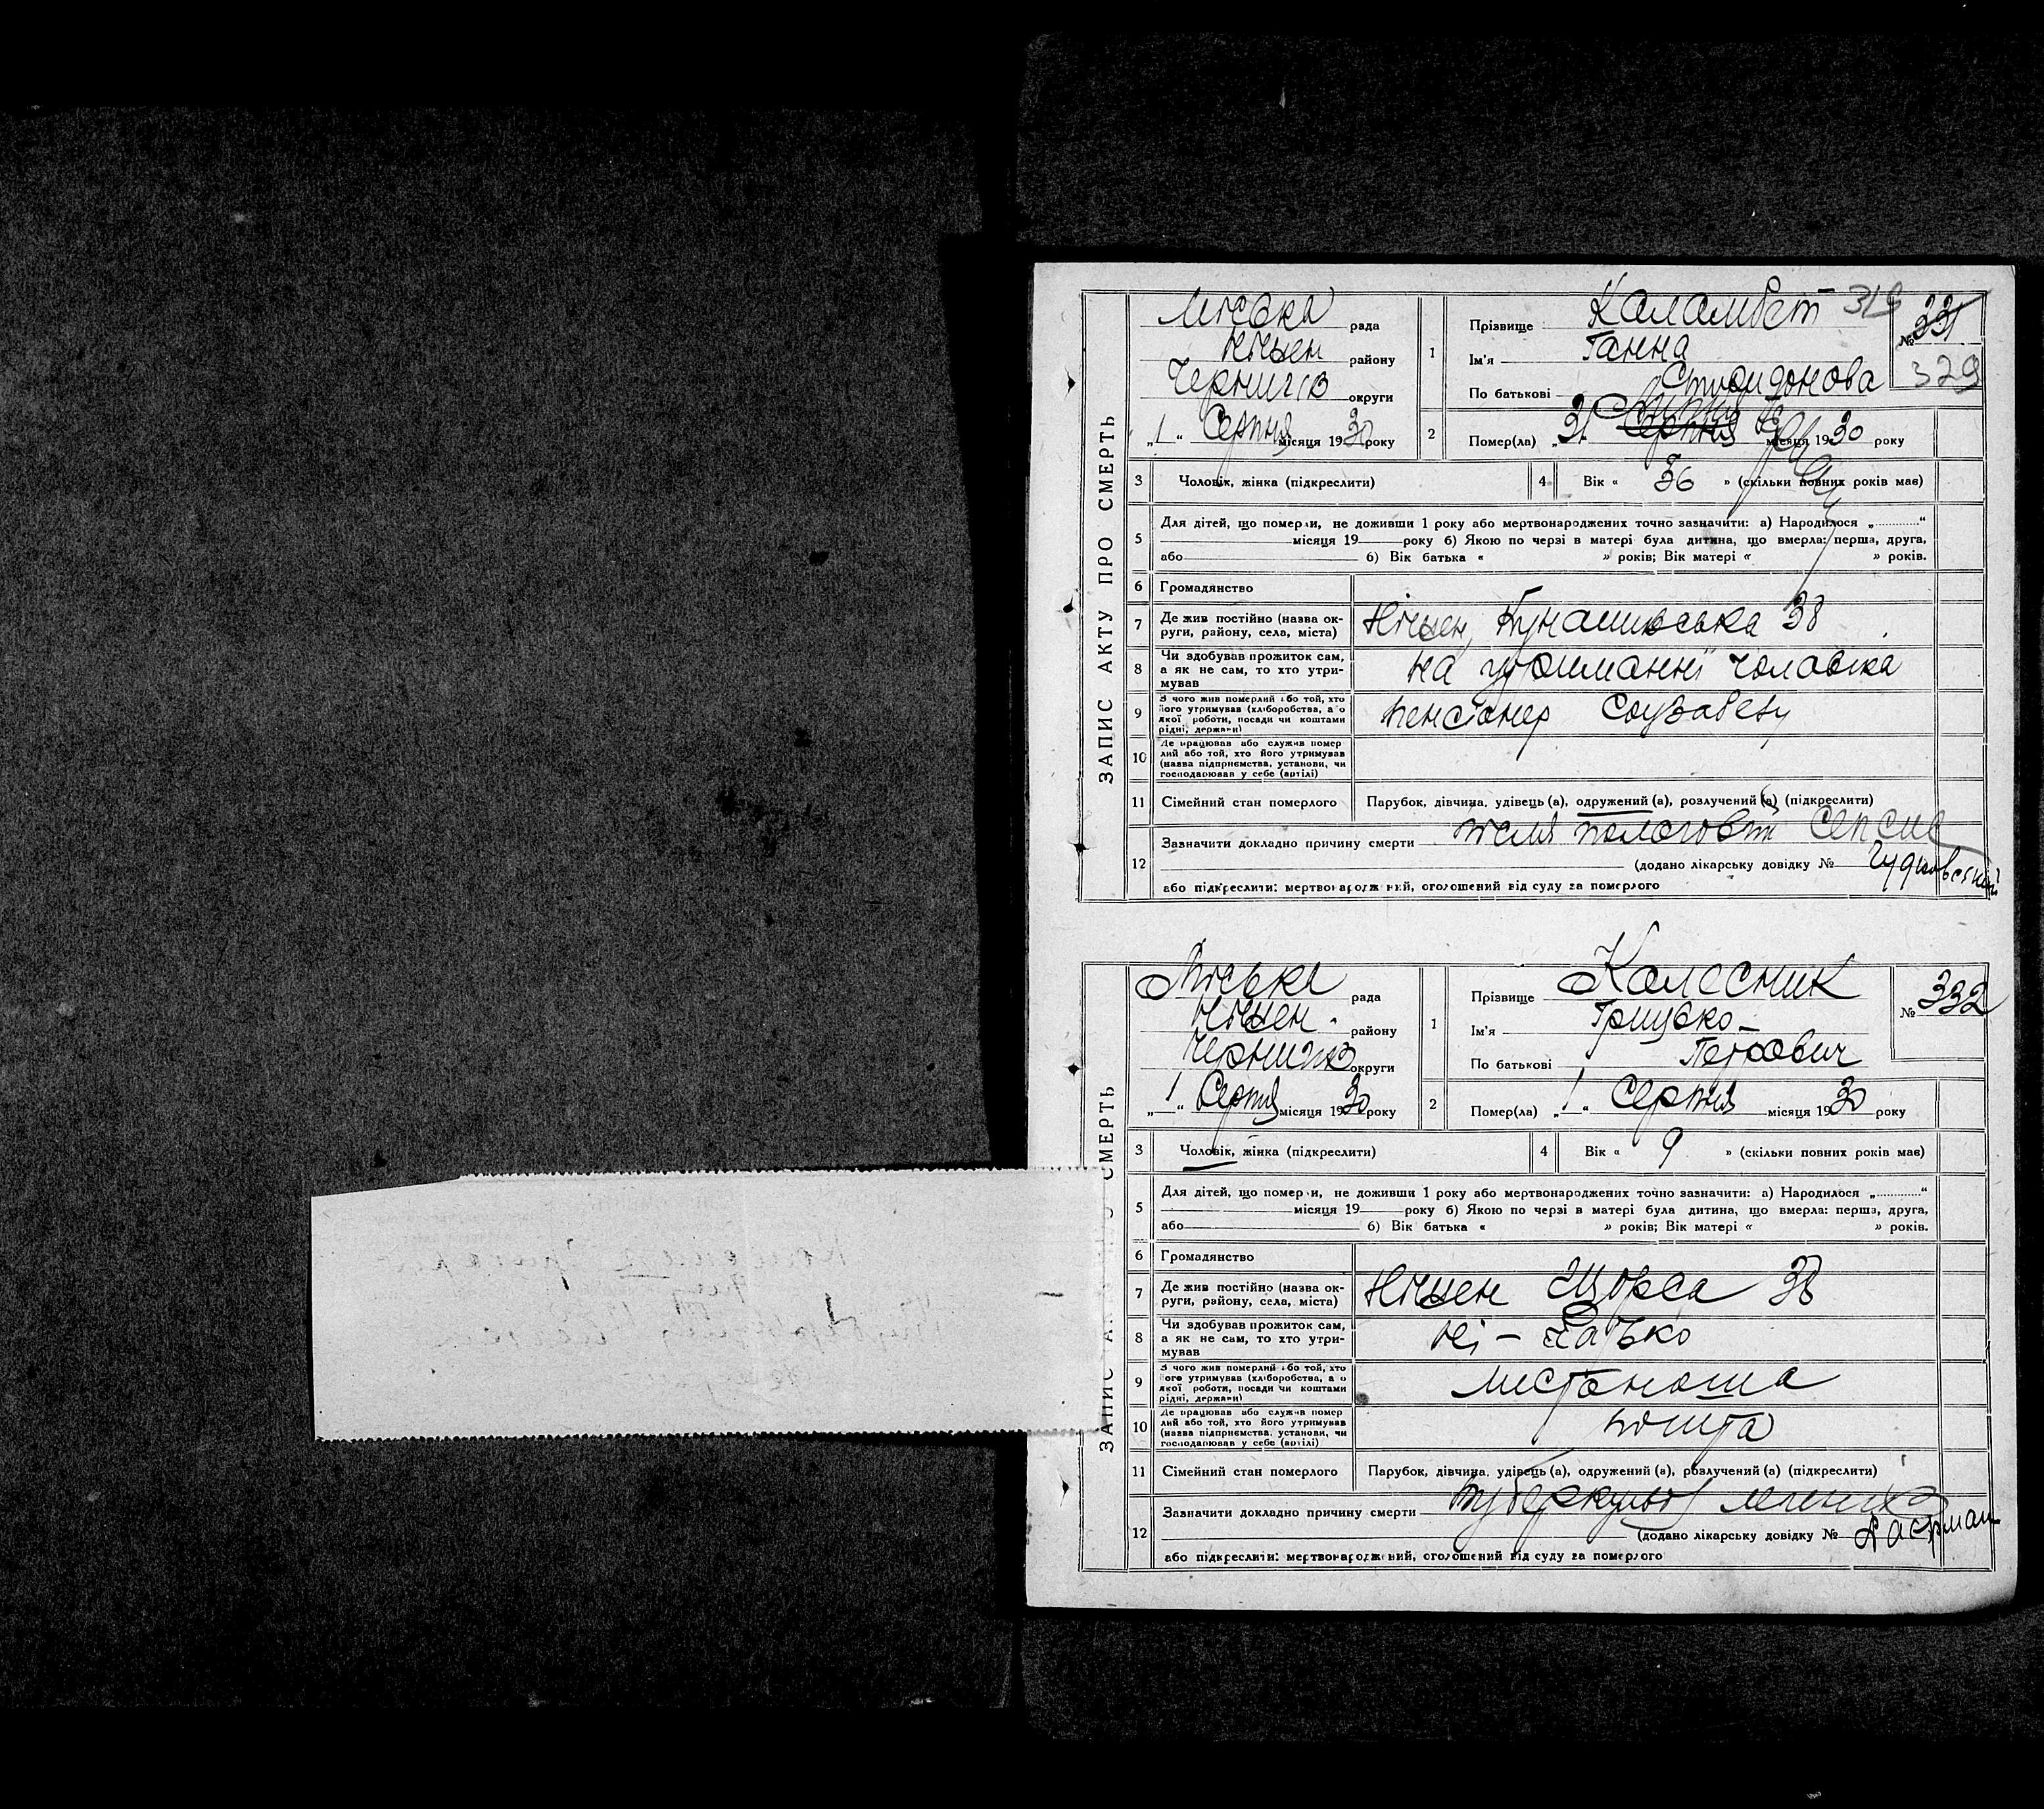 ЗАПИС АКТУ ПРО СМЕРТЬ
Міська рада
Ніжен району
Чернигів округи
„1“ Серпня місяця 1930 року
1 Прізвище Каламбет 319
Ім'я Ганна
По батькові Спиридонова
№ 331
329
2 Помер(ла) „31 Серпня місяця 1930 року
3 Чоловік, жінка (підкреслити)
4 Вік « 36 » (скільки повних років має)
5 Для дітей, що померли, не доживши 1 року або мертвонароджених точно зазначити: а) Народилося „ “
місяця 19 року б) Якою по черзі в матері була дитина, що вмерла: перша, друга,
або б) Вік батька « » років; Вік матері « » років.
6 Громадянство
7 Де жив постійно (назва ок-
руги, району, села, міста) Ніжен, Кунашивська 38
8 Чи здобував прожиток сам,
а як не сам, то хто утри-
мував на утриманні чоловіка
9 З чого жив померлий або той, хто
його утримував (хліборобства, а о
якої роботи, посади чи коштами
рідні, держави) пенсіонер
10 Де працював або служив помер
лий або той, хто його утримував
(назва підприємства, установи, чи
господарював у себе (артілі)
11 Сімейний стан померлого Парубок, дівчина, удівець (а), одружений (а), розлучений (а) (підкреслити)
12 Зазначити докладно причину смерти після пологовий сепсис
(додано лікарську довідку №
або підкреслити: мертвонароджений, оголошений від суду за померлого
ЗАПИС АК СМЕРТЬ
Міська рада
Ніжен району
Чернигів округи
„1“ Серпня місяця 1930 року
1 Прізвище Колесник
Ім'я Грицько
По батькові Петрович
№ 332
2 Помер(ла) „1“ Серпня місяця 1930 року
3 Чоловік, жінка (підкреслити)
4 Вік « 9 » (скільки повних років має)
5 Для дітей, що померли, не доживши 1 року або мертвонароджених точно зазначити: а) Народилося „ “
місяця 19 року б) Якою по черзі в матері була дитина, що вмерла: перша, друга,
або б) Вік батька « » років; Вік матері « » років.
6 Громадянство
7 Де жив постійно (назва ок-
руги, району, села, міста) Ніжен Щорса 38
8 Чи здобував прожиток сам,
а як не сам, то хто утри-
мував Ні – Батько
9 З чого жив померлий або той, хто
його утримував (хліборобства, а о
якої роботи, посади чи коштами
рідні, держави) листоноша
10 Де працював або служив помер
лий або той, хто його утримував
(назва підприємства, установи, чи
господарював у себе (артілі) пошта
11 Сімейний стан померлого Парубок, дівчина, удівець (а), одружений (а), розлучений (а) (підкреслити)
12 Зазначити докладно причину смерти туберкульоз легених
(додано лікарську довідку №
або підкреслити: мертвонароджений, оголошений від суду за померлого